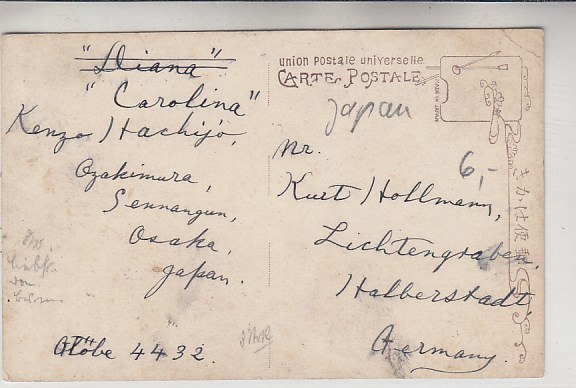 "Diana"
"Carolina"
Kenzo Hachijō,
Ozakimura,
Sennangun,
Osaka,
Japan.
Globe 4432.
union postale universelle.
CARTE POSTALE
Japan
Mr.
Kurt Hollmann,
Lichtengraben,
Halberstadt,
Germany.
6,-
きかは便郵